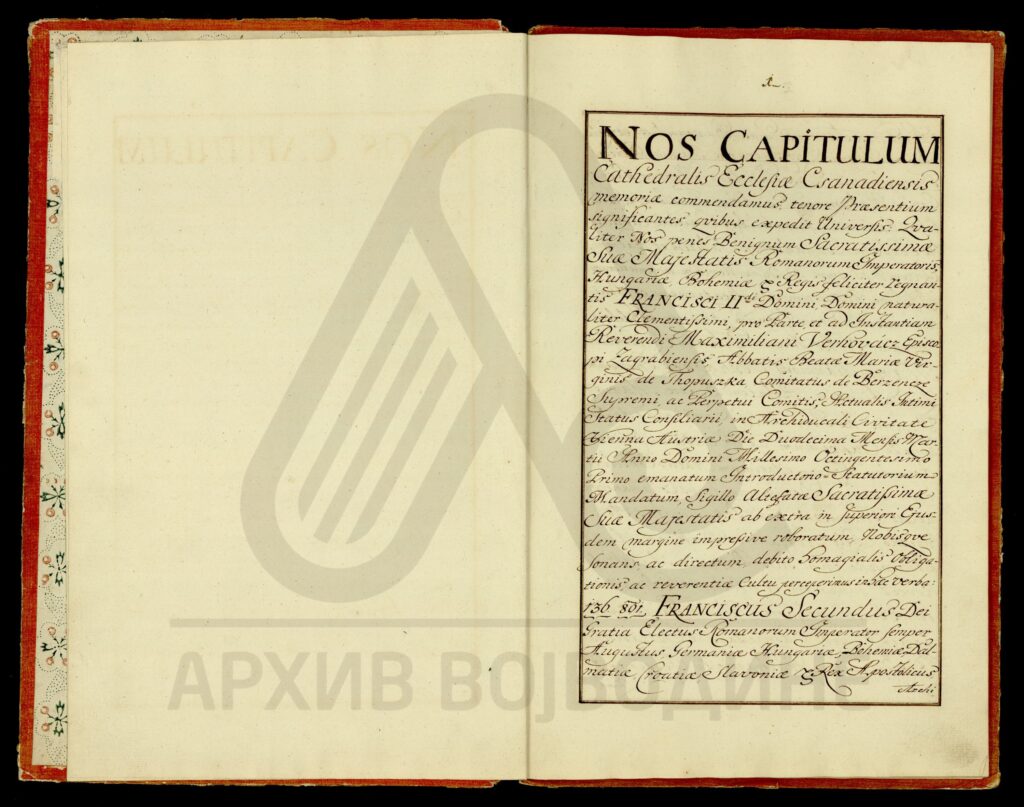 1.
NOS CAPITULUM
Cathedralis Ecclesiæ Csanadiensis
memoriæ commendamus tenore Præsentium
significantes, qvibus expedit Universis. Qva-
liter Nos penes Benignum Sacratissimæ
Suæ Majestatis Romanorum Imperatoris,
Hungariæ, Bohemiæ & Regis feliciter regnan-
tis FRANCISCI II di Domini, Domini natura-
liter Clementissimi, pro Parte, et ad Instantiam
Reverendi Maximiliani Verhovácz Episco-
pi Zagrabiensis, Abbatis Beatæ Mariæ Vir-
ginis de Thopuszka Comitatus de Berzencze
Supremi, ac Perpetui Comitis, Actualis Intimi
Status Consiliarii, in Archiducali Civitate
Vienna Austriæ Die Duodecima Mensis Mar-
tii Anno Domini Millesimo Octingentesimo
Primo emanatum Introductorio-Statutorium
Mandatum, Sigillo Altefatæ Sacratissimæ
Suæ Majestatis ab extra in superiore Ejus-
dem margine impressive roboratum, Nobisqve
sonans, ac directum, debito homagialis obliga-
tionis, ac reverentiæ Cultu perceperimus in hæc verba:
FRANCISCUS Secundus Dei
Gratia Electus Romanorum Imperator semper
Augustus Germaniæ Hungariæ, Bohemiæ, Dal-
matiæ Croatiæ Slavoniæ & Rex Apostolicus
Archi
АРХИВ ВОЈВОДИНЕ